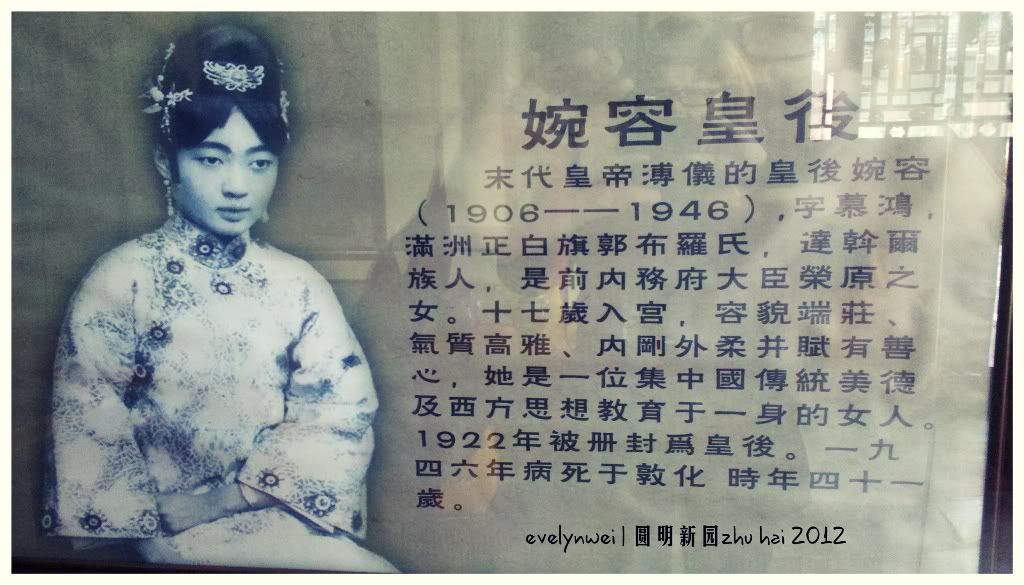 婉容皇後
末代皇帝溥儀的皇後婉容
（1906——1946）,字慕鴻，
滿洲正白旗郭布羅氏，達斡爾
族人，是前内務府大臣榮原之
女。十七歲入宫，容貌端莊、
氣質高雅、内剛外柔并賦有善
心，她是一位集中國傳統美德
及西方思想教育于一身的女人。
1922年被册封爲皇後。一九
四六年病死于敦化 時年四十一
歲。
evelynwei | 圓明新园zhu hai 2012